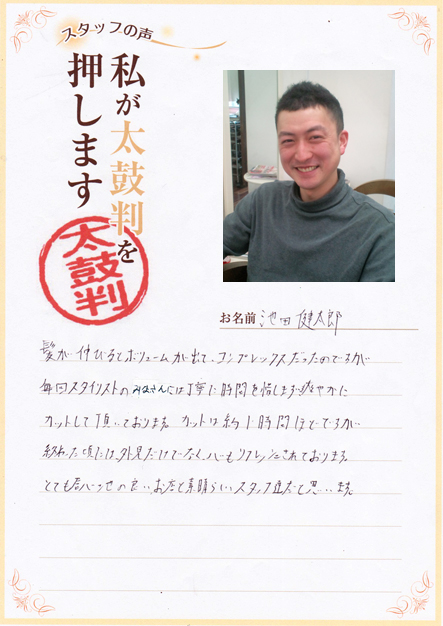 スタッフの声
私が太鼓判を
押します
太鼓判
お名前 池田 健太郎
髪が伸びるとボリュームが出て、コンプレックスだったのですが
毎回スタイリストのみなさんには丁寧に時間を惜しまず爽やかに
カットして頂いております。カットは約1時間ほどですが
終わった頃には、外見だけでなく、心もリフレッシュされております。
とても居心地の良いお店と素晴らしいスタッフ達だと思います。